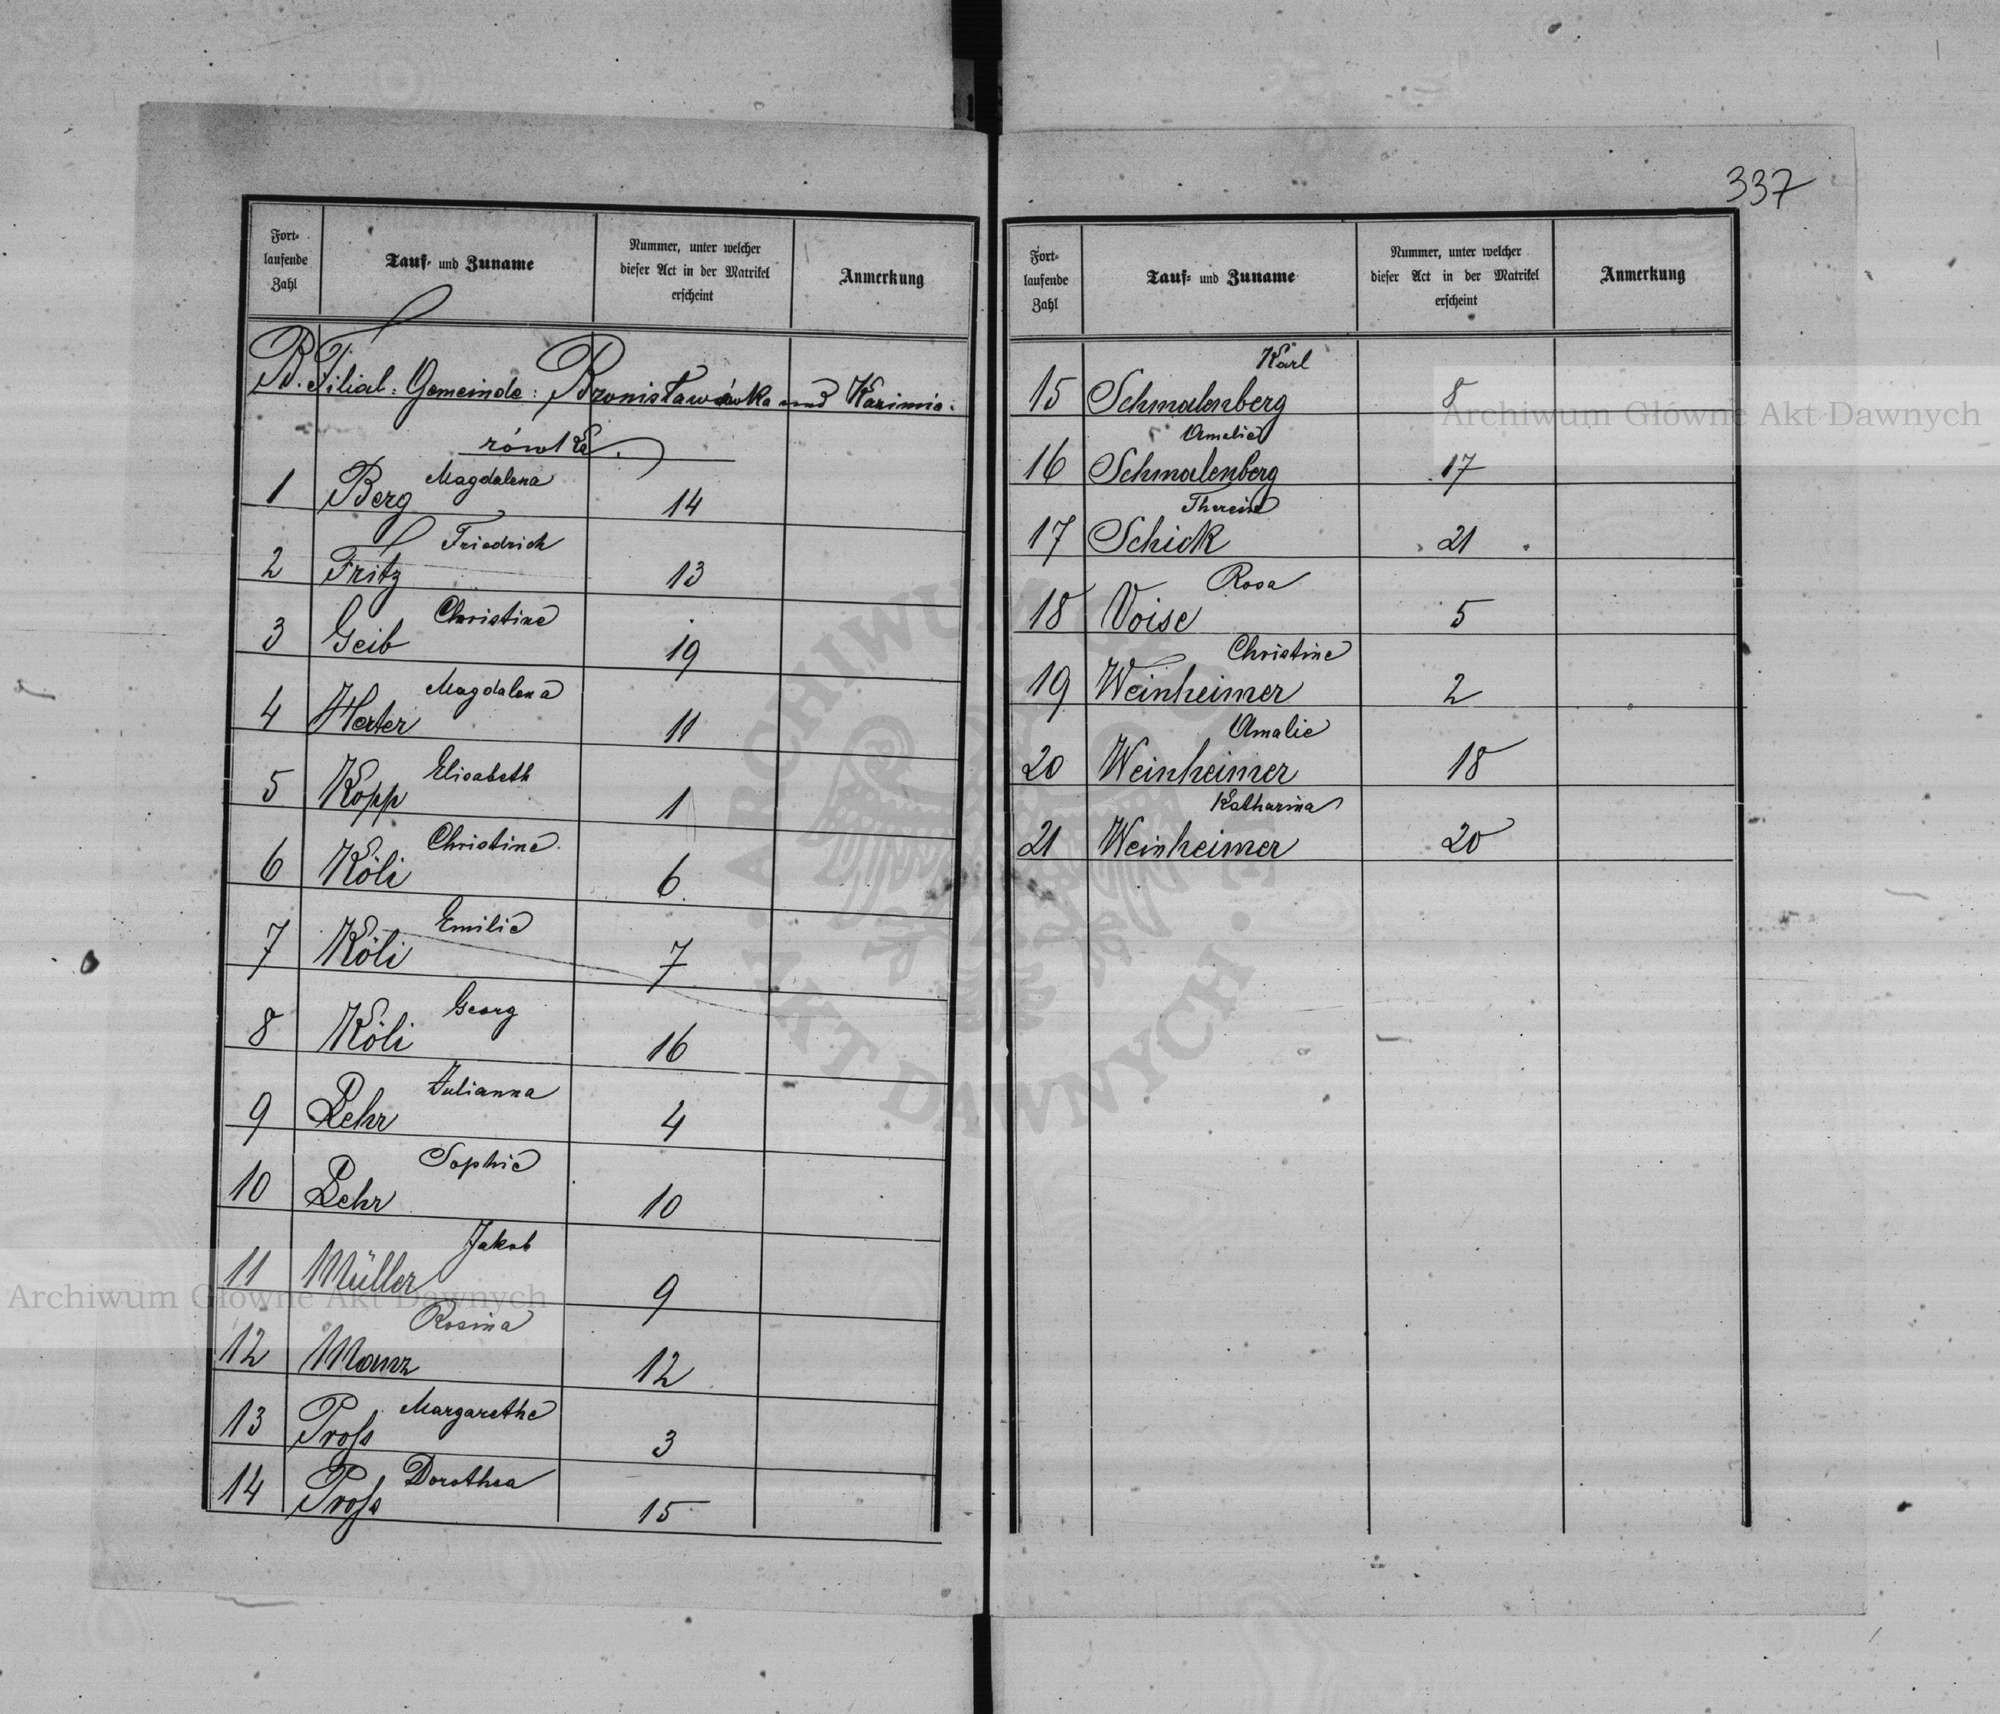 337
Fort-
laufende
Zahl
Tauf- und Zuname
Nummer, unter welcher
dieser Act in der Matrikel
erscheint
Anmerkung
B. Filial-Gemeinde: Bronisławówka und Kazimie-
rówka.
1 Berg Magdalena 14
2 Fritz Friedrich 13
3 Geib Christine 19
4 Herter Magdalena 11
5 Kopp Elisabeth 1
6 Köli Christine 6
7 Köli Emilie 7
8 Köli Georg 16
9 Lehr Julianna 4
10 Lehr Sophie 10
11 Müller Jakob 9
12 Manz Rosina 12
13 Proß Margarethe 3
14 Proß Dorothea 15
Fort-
laufende
Zahl
Tauf- und Zuname
Nummer, unter welcher
dieser Act in der Matrikel
erscheint
Anmerkung
15 Schmalenberg Karl 8
16 Schmalenberg Amalie 17
17 Schick Therese 21
18 Voise Rosa 5
19 Weinheimer Christine 2
20 Weinheimer Amalie 18
21 Weinheimer Katharina 20
Archiwum Główne Akt Dawnych
Archiwum Główne Akt Dawnych
ARCHIWUM GŁÓWNE
AKT DAWNYCH